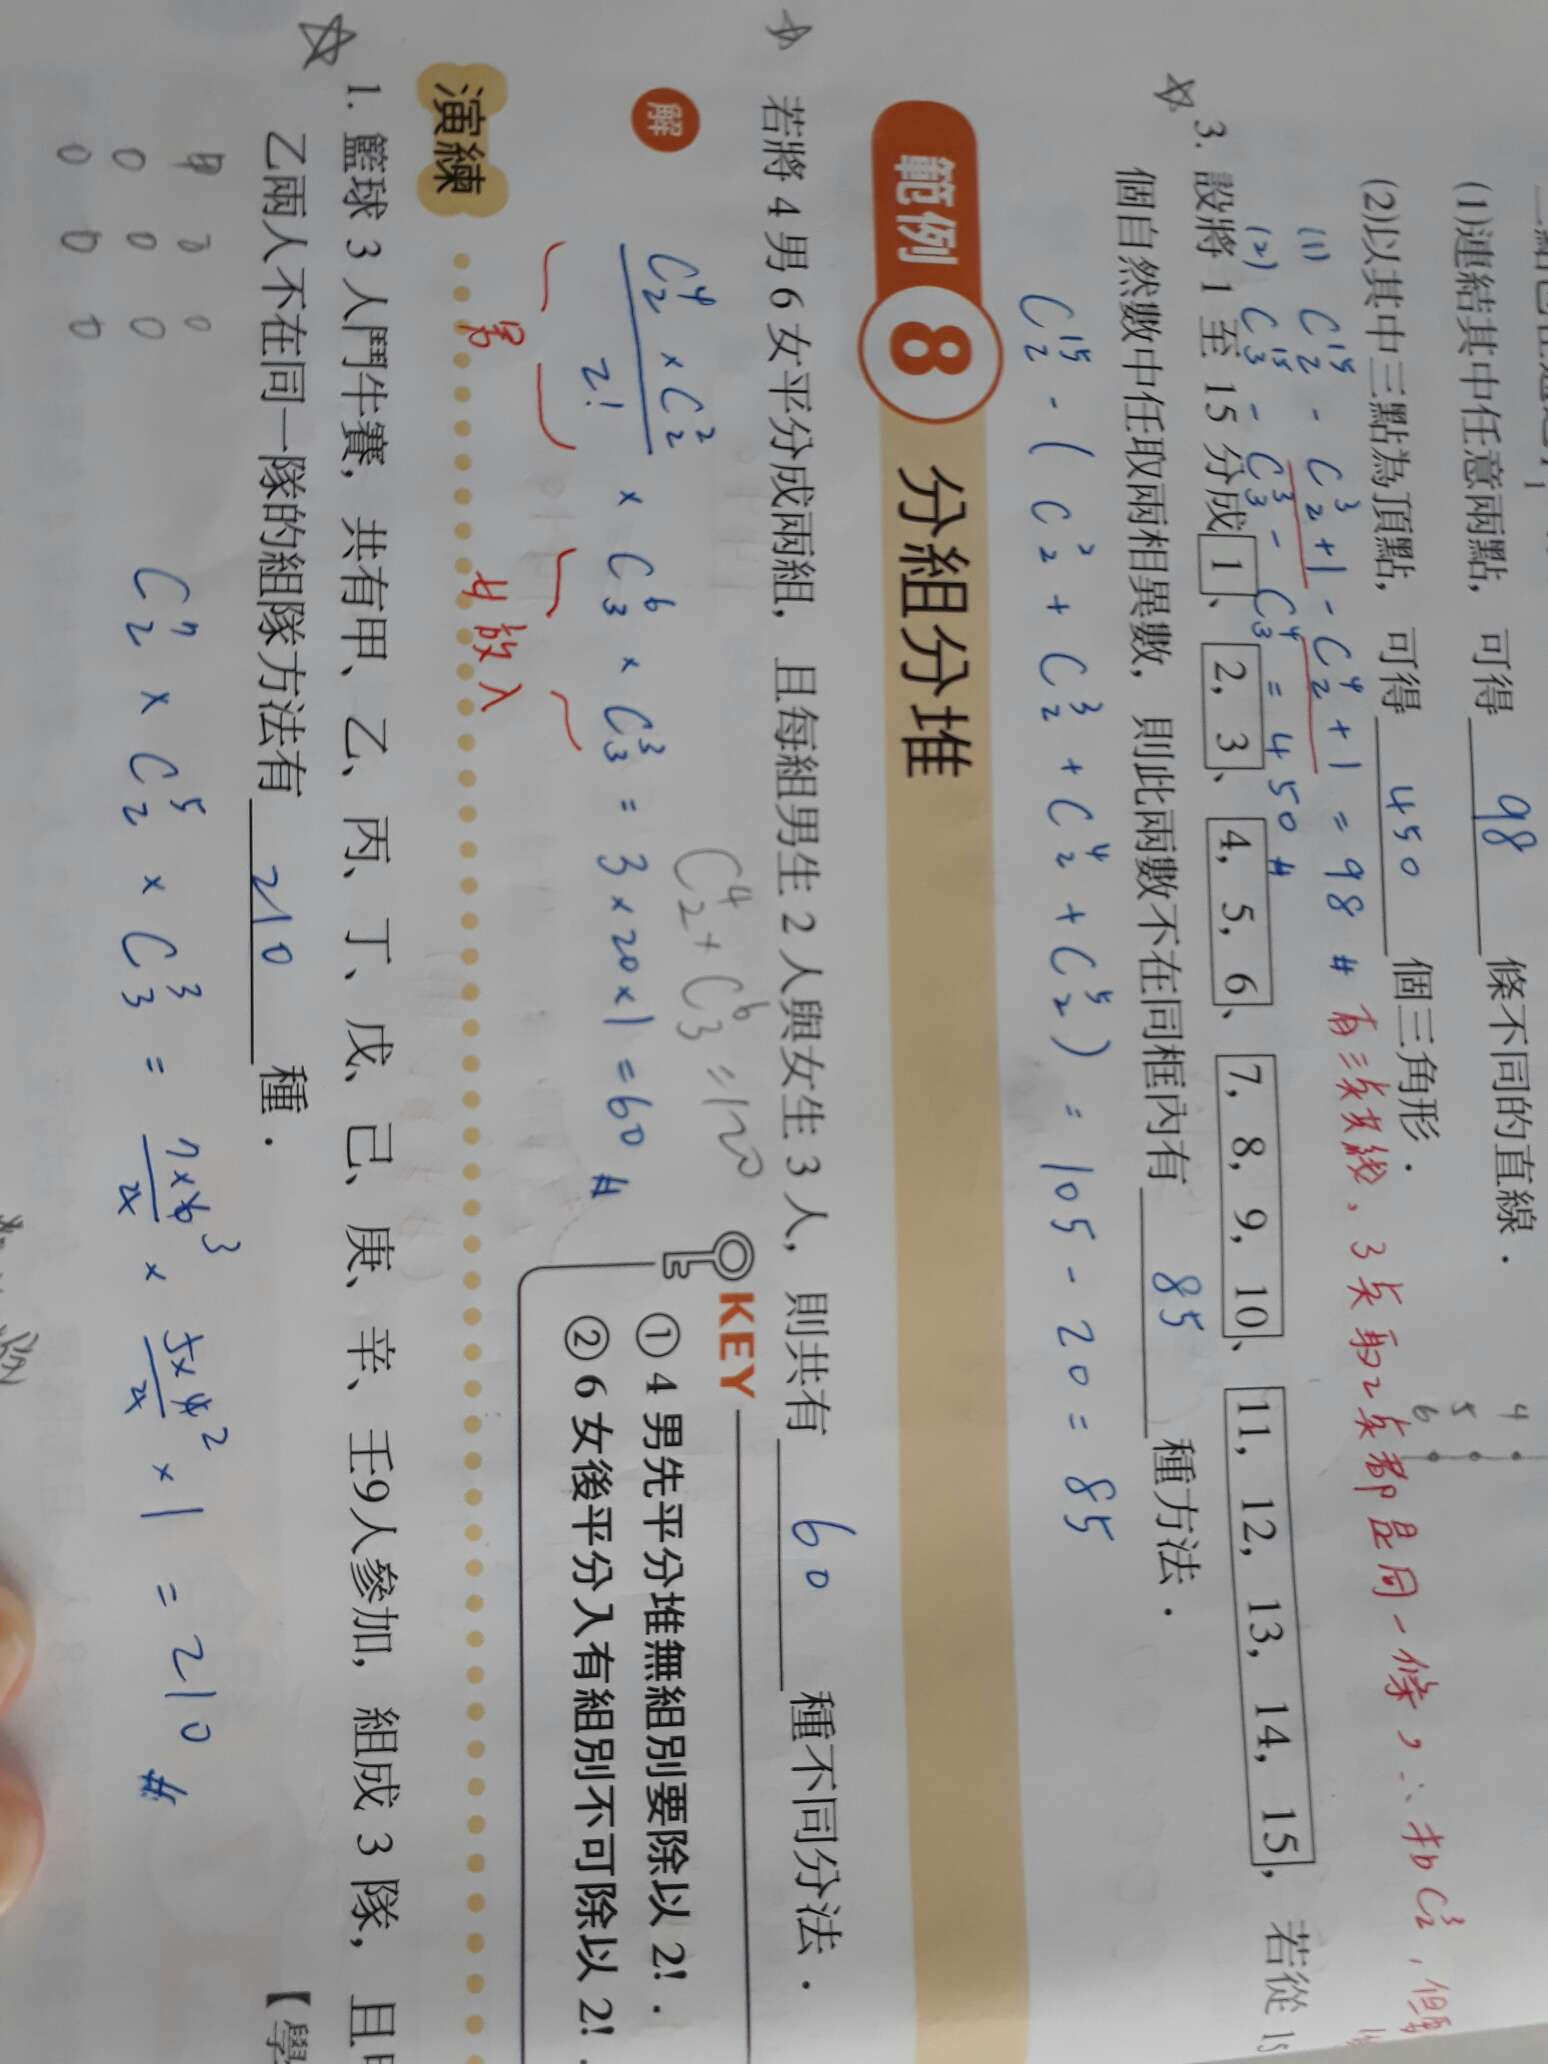 (1)連結其中任意兩點，可得 98 條不同的直線．
(2)以其中三點為頂點，可得 450 個三角形．
4
5
6
(1) C^15_2 - C^3_2 + 1 - C^4_2 + 1 = 98 # 有三点共線，3点取2点都是同一條，∴扣C^3_2，但
(2) C^15_3 - C^3_3 - C^4_3 = 450 #
3. 設將 1 至 15 分成 1、2, 3、4, 5, 6、7, 8, 9, 10、11, 12, 13, 14, 15，若從 15
個自然數中任取兩相異數，則此兩數不在同框內有 85 種方法．
C^15_2 - ( C^2_2 + C^3_2 + C^4_2 + C^5_2 ) = 105 - 20 = 85
範例 8 分組分堆
若將 4 男 6 女平分成兩組，且每組男生 2 人與女生 3 人，則共有 60 種不同分法．
解
C^4_2 + C^6_3 = 120
C^4_2 × C^2_2 / 2! × C^6_3 × C^3_3 = 3 × 20 × 1 = 60 #
男 女放入
KEY
① 4 男先平分堆無組別要除以 2!．
② 6 女後平分入有組別不可除以 2!．
演練
1. 籃球 3 人鬥牛賽，共有甲、乙、丙、丁、戊、己、庚、辛、壬9人參加，組成 3 隊，且甲
乙兩人不在同一隊的組隊方法有 210 種．
【學
甲 0 0
0 0 0
0 0 0
C^7_2 × C^5_2 × C^3_3 = 7×6/2 × 5×4/2 × 1 = 210 #